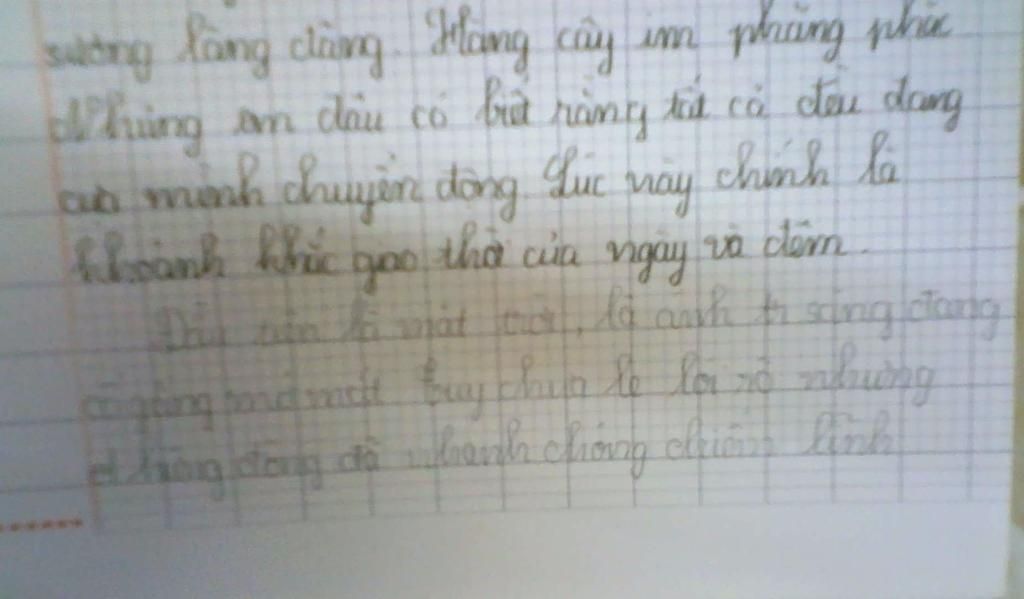 sương lãng đãng. Hàng cây im phăng phắc
Nhưng em đâu có biết rằng tất cả đều đang
cựa mình chuyển động. Lúc này chính là
khoảnh khắc giao thời của ngày và đêm.
Đầu tiên là mặt trời, là ánh sáng đang
tuy chưa lộ rõ nhưng
nhanh chóng chiếm lĩnh